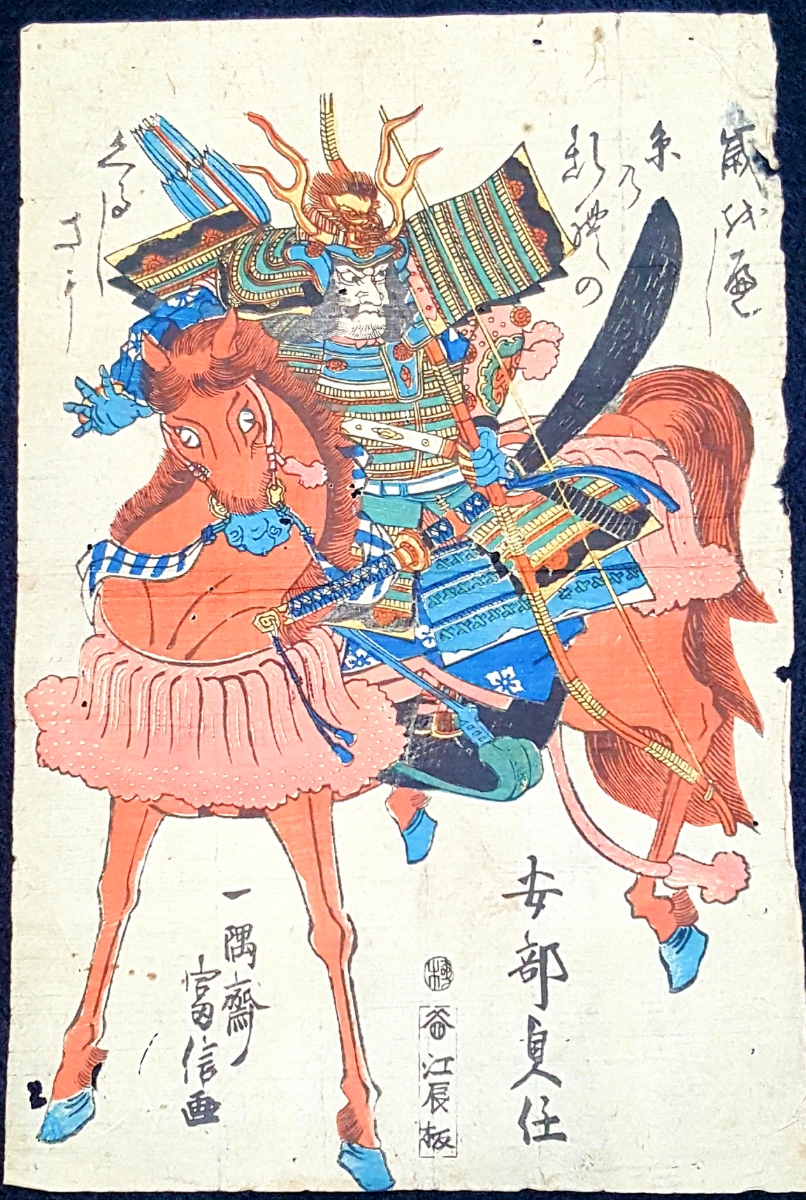 歳をへし
糸乃
乱れの
くるし
さに
安部貞任
極
江辰板
一隅齋
富信画